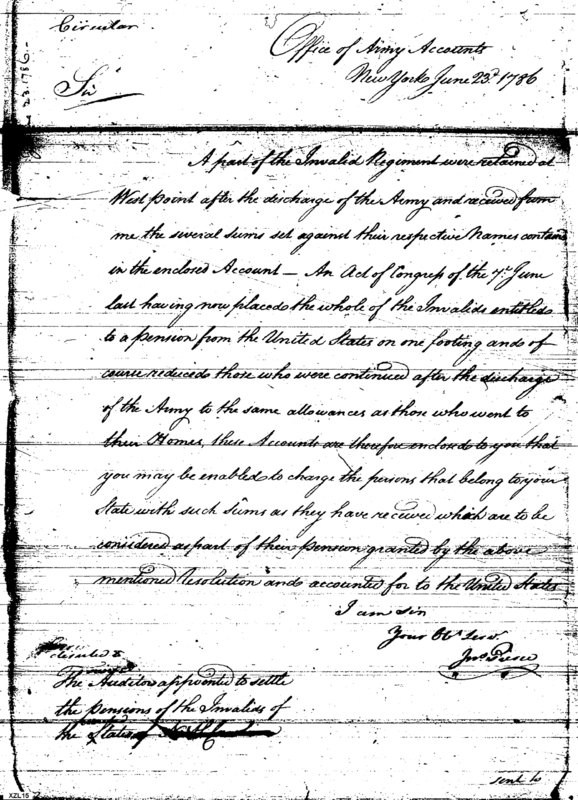 Circular
Office of Army Accounts
New York June 23d. 1786
23. 1786.
Sir
A part of the Invalid Regiment were retained at
West Point after the discharge of the Army and received from
me the several sums set against their respective Names contained
in the enclosed Account — An Act of Congress of the 7th. June
last having now placed the whole of the Invalids entitled
to a pension from the United States on one footing and of
course reduced those who were continued after the discharge
of the Army to the same allowances as those who went to
their Homes, these Accounts are therefore enclosed to you that
you may be enabled to charge the persons that belong to your
State with such sums as they have received which are to be
considered as part of their pension granted by the above
mentioned Resolution and accounted for to the United States
I am sir
Your Obt. Serv.
Jno. Pierce
directed to
The Auditor appointed to settle
the pensions of the Invalids of
the State of
sent to
XZL15